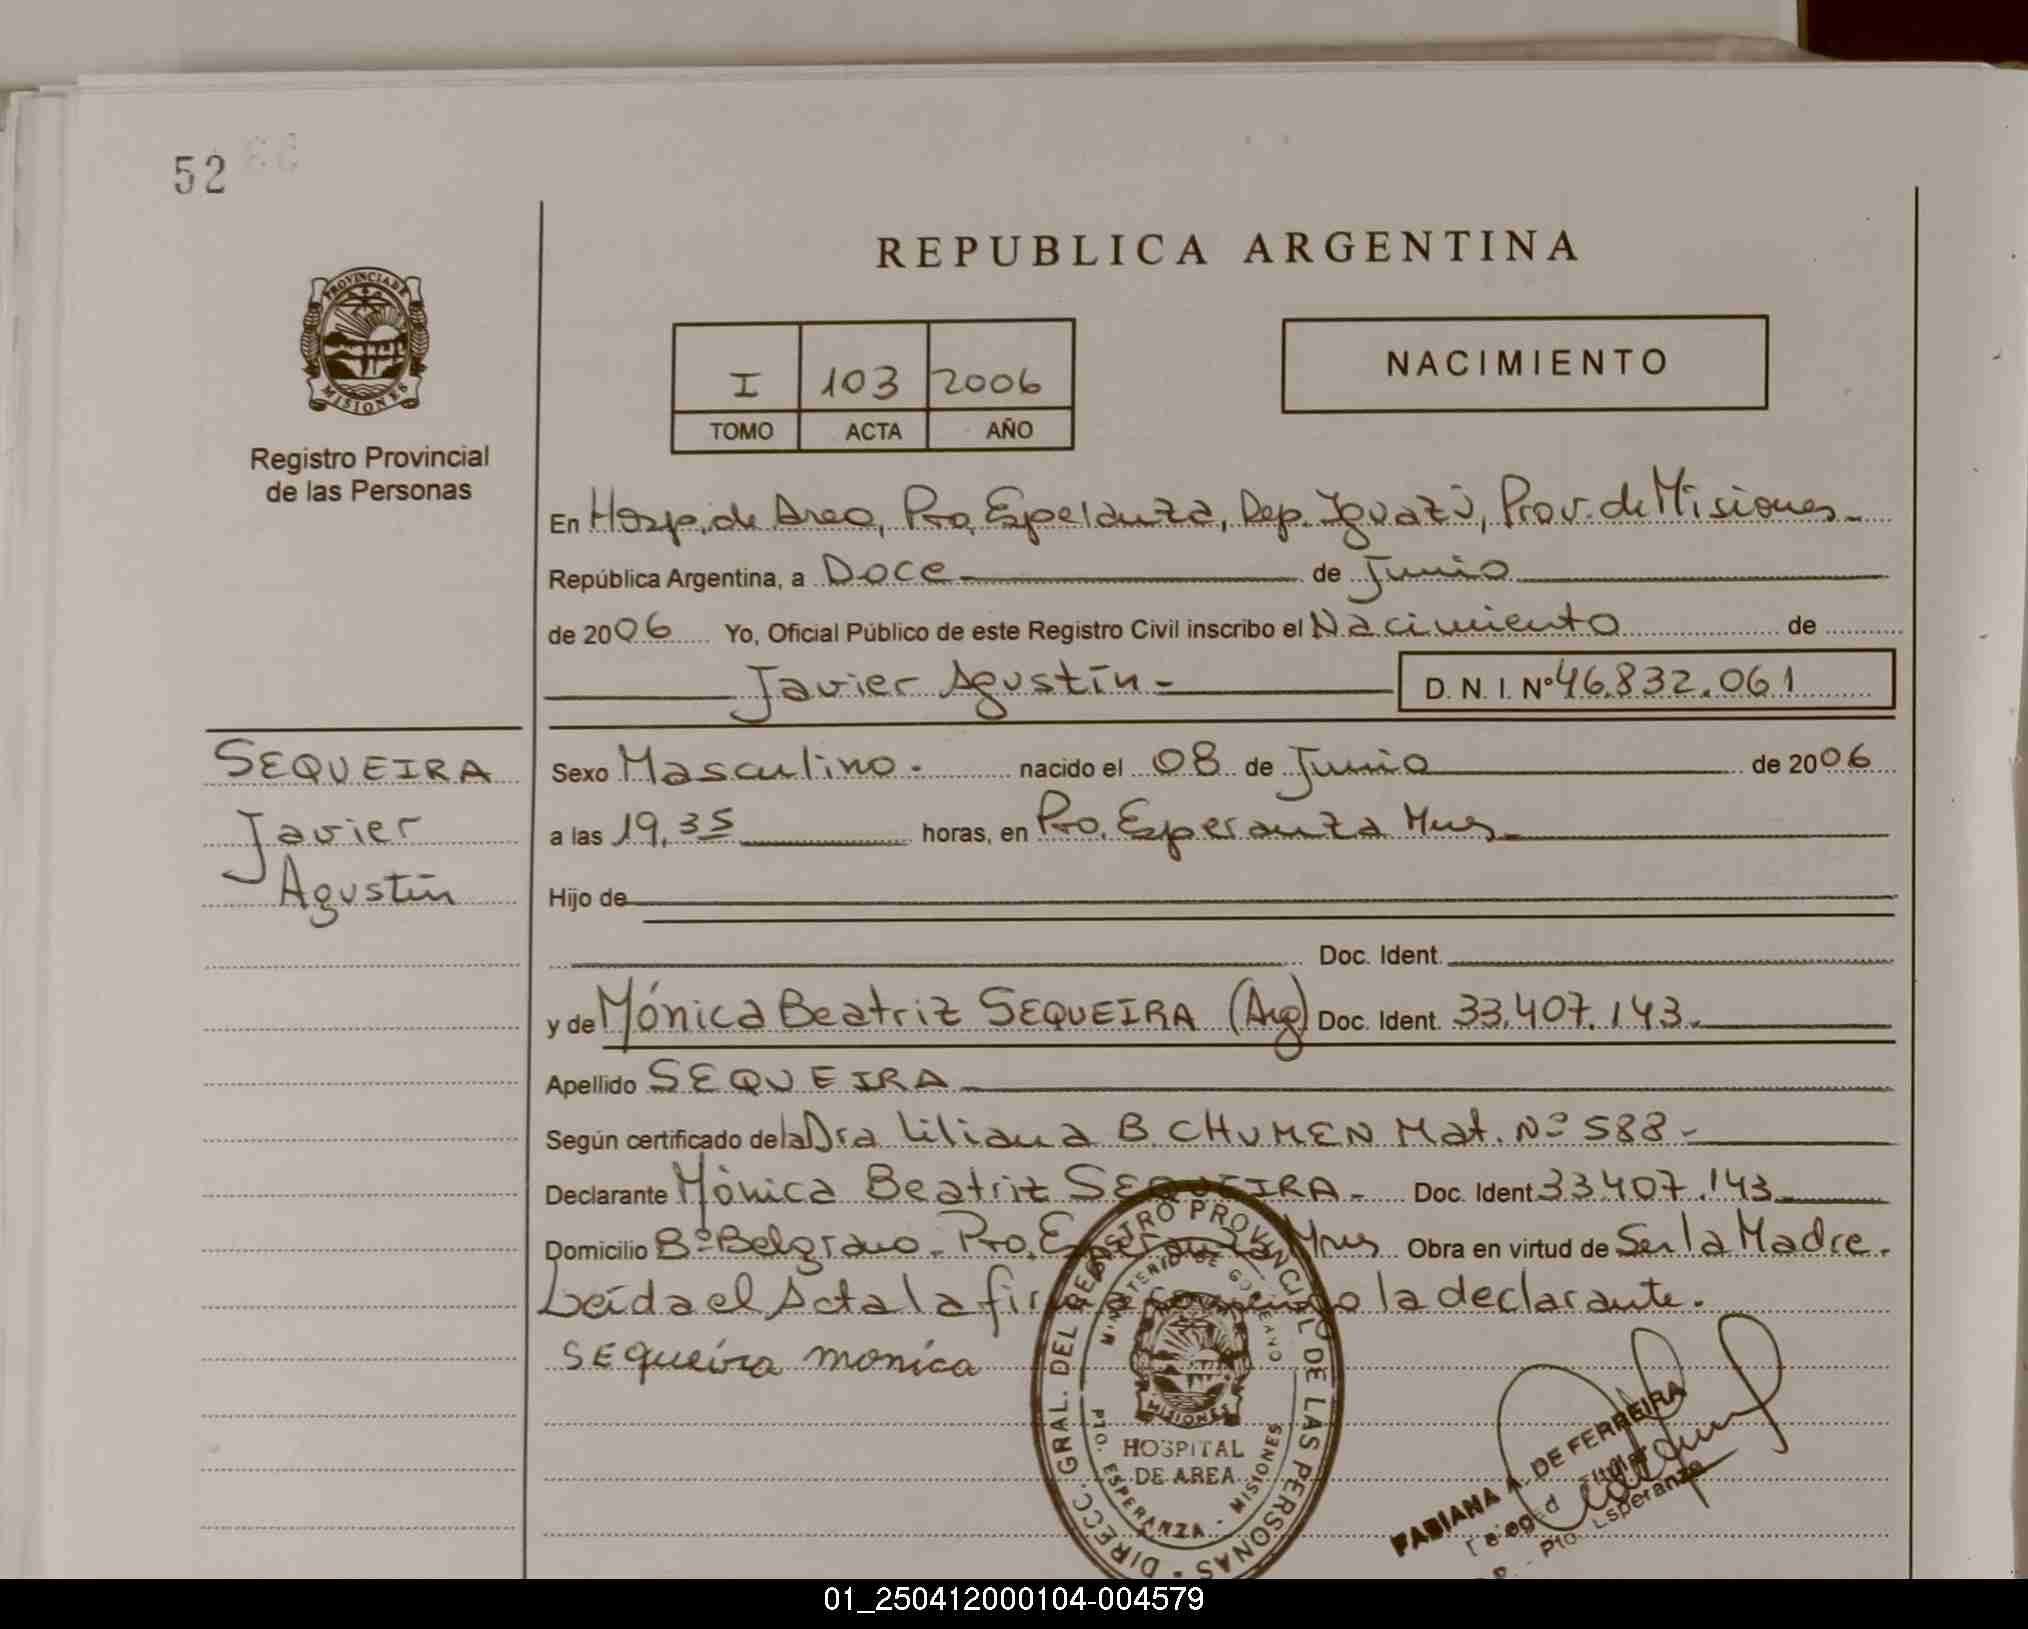 52
REPUBLICA ARGENTINA
PROVINCIA DE
MISIONES
Registro Provincial
de las Personas
I 103 2006
TOMO ACTA AÑO
NACIMIENTO
En Hosp. de Area, Pto. Esperanza, Dep. Iguazú, Prov. de Misiones
República Argentina, a Doce de Junio
de 2006 Yo, Oficial Público de este Registro Civil inscribo el Nacimiento de
Javier Agustín D. N. I. Nº 46.832.061
SEQUEIRA
Javier
Agustín
Sexo Masculino nacido el 08 de Junio de 2006
a las 19,35 horas, en Pto. Esperanza Mnes
Hijo de
Doc. Ident.
y de Mónica Beatriz SEQUEIRA (Arg) Doc. Ident. 33.407.143
Apellido SEQUEIRA
Según certificado de la Dra Liliana B. CHUMEN Mat. Nº 588
Declarante Mónica Beatriz SEQUEIRA Doc. Ident 33.407.143
Domicilio Bº Belgrano. Pto. Esperanza Mnes Obra en virtud de Ser la Madre.
Leída el Acta la firma conmigo la declarante.
SEqueira monica
DIRECC. GRAL. DEL REGISTRO PROVINCIAL DE LAS PERSONAS
MINISTERIO DE GOBIERNO
MISIONES
HOSPITAL
DE AREA
PTO. ESPERANZA - MISIONES
FABIANA A. DE FERREIRA
Titular
Pto. Esperanza
01_250412000104-004579